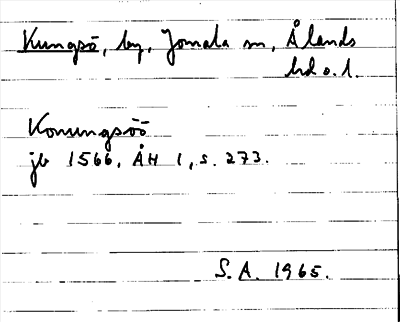 Kungsö, by, Jomala sn, Ålands
hd o. l.
Konungsöö
jb 1566, ÅH 1, s. 273.
S. A. 1965.